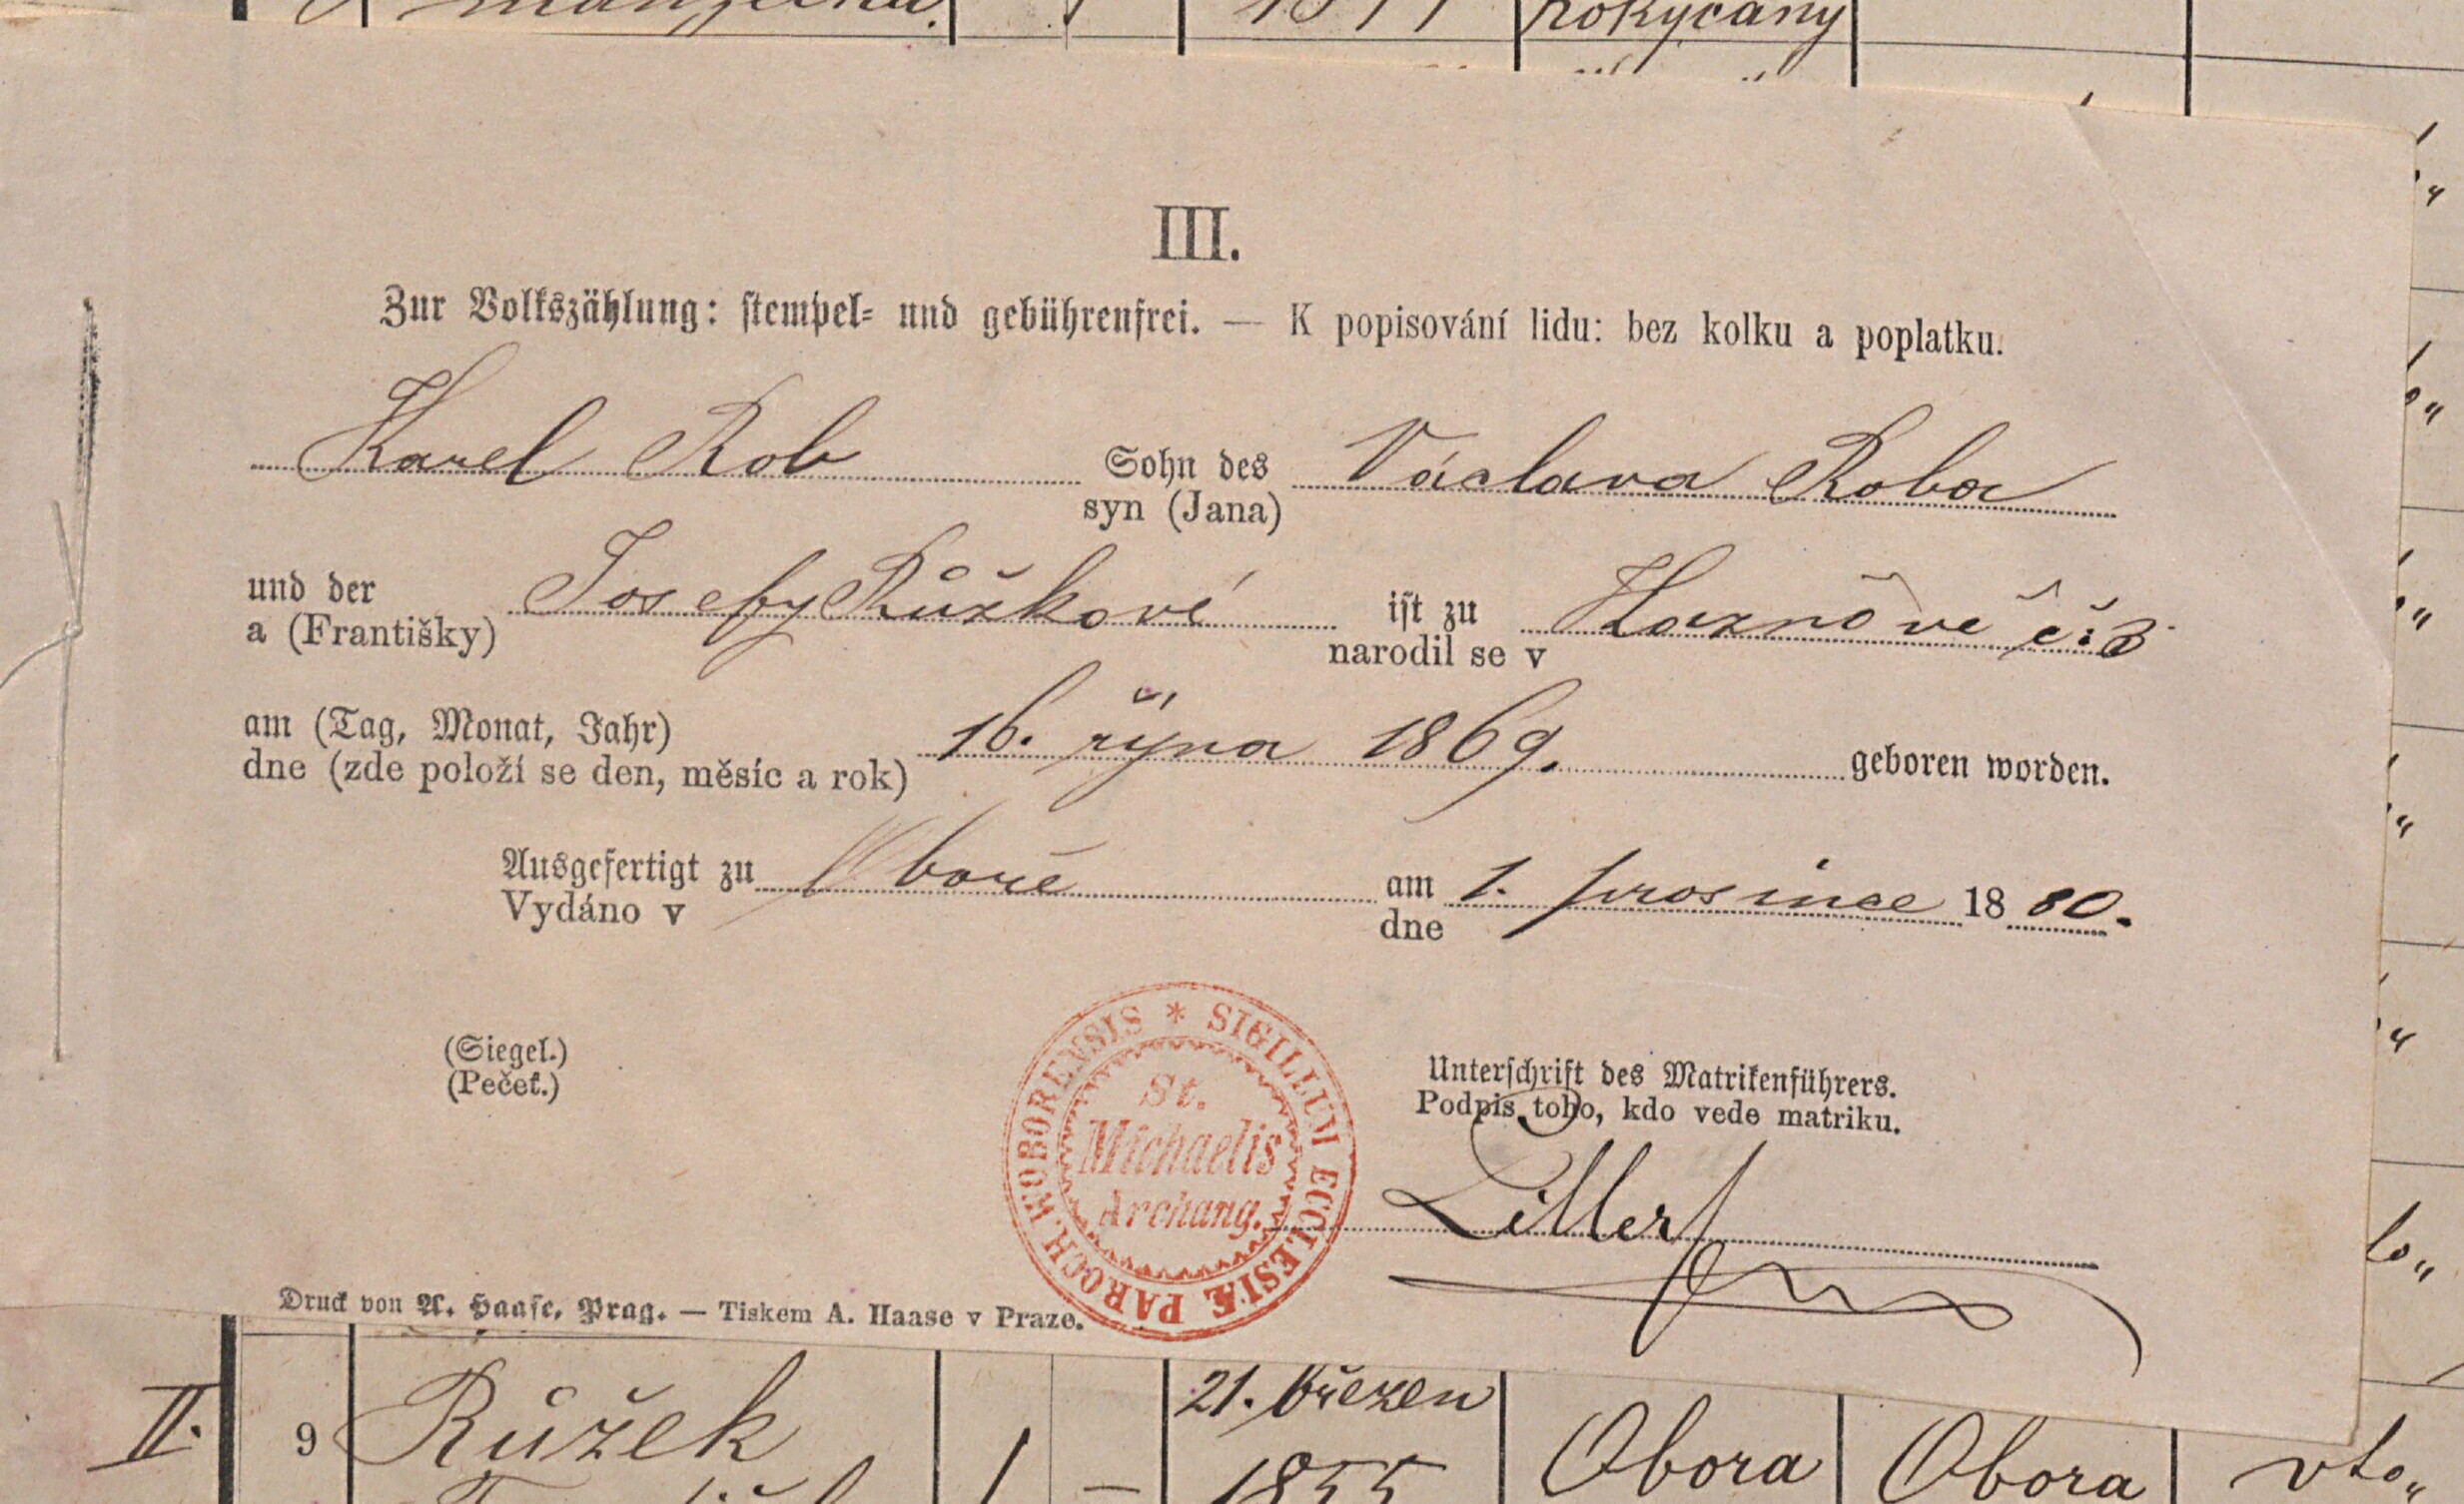 Rokycany
III.
Zur Volkszählung: stempel- und gebührenfrei. — K popisování lidu: bez kolku a poplatku.
Karel Rob Sohn des Václava Roba
syn (Jana)
und der Josefy Růžkové ist zu Kaznově č: 3
a (Františky) narodil se v
am (Tag, Monat, Jahr) 16. října 1869. geboren worden.
dne (zde položí se den, měsíc a rok)
Ausgefertigt zu Oboře am 1. prosince 1880.
Vydáno v dne
(Siegel.)
(Pečeť.)
SIGILLUM ECCLESIÆ PAROCH. WOBORENSIS *
St.
Michaelis
Archang.
Unterschrift des Matrikenführers.
Podpis toho, kdo vede matriku.
Druck von A. Haase, Prag. — Tiskem A. Haase v Praze.
II. 9 Růžek 1 — 21. březen 1855 Obora Obora